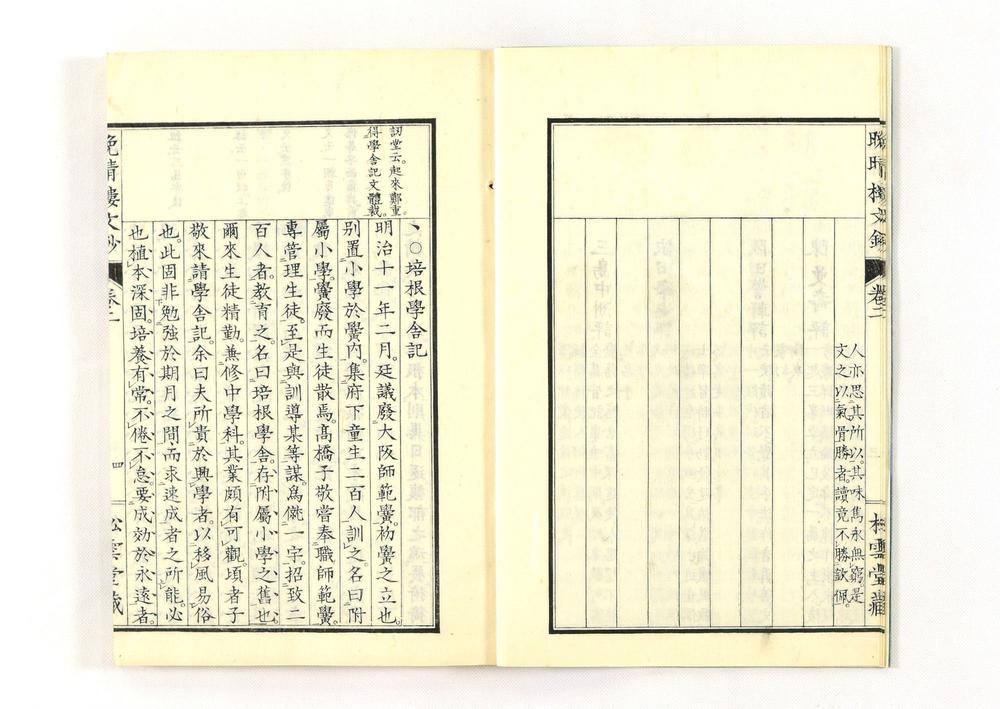 人亦思其所以其味雋永無窮是
文之以氣骨勝者。讀竟不勝欽佩。
卷二
訒堂云。起來鄭重。
得學舍記文體裁。
○培根學舍記
明治十一年二月。廷議廢大阪師範黌。初黌之立也。
別置小學於黌內。集府下童生二百人訓之。名曰附
屬小學。黌廢而生徒散焉。高橋子敬嘗奉職師範黌。
專管理生徒。至是與訓導某等謀。為僦一宇。招致二
百人者。教育之。名曰培根學舍。存附屬小學之舊也。
爾來生徒精勤。兼修中學科。其業頗有可觀。頃者子
敬來請學舍記。余曰夫所貴於興學者。以移風易俗
也。此固非勉強於期月之間而求速成者之所能。必
也植本深固。培養有常。不倦不怠。要成効於永遠者。
晚晴樓文鈔
卷二
四
松雲堂藏